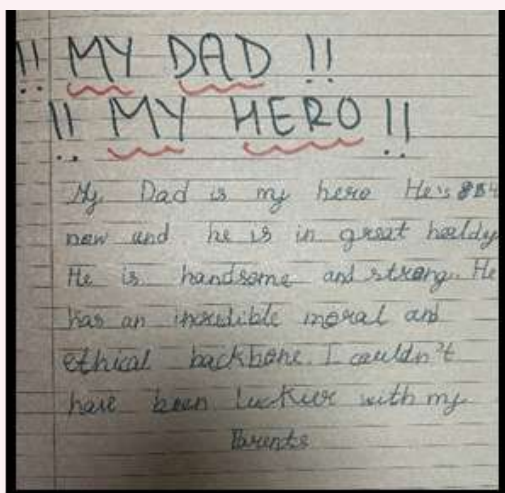 !! MY DAD !!
!! MY HERO !!
My Dad is my hero He's 84
now and he is in great healdy
He is handsome and strong. He
has an incredible moral and
ethical backbone. I couldn't
have been luckier with my
Parents